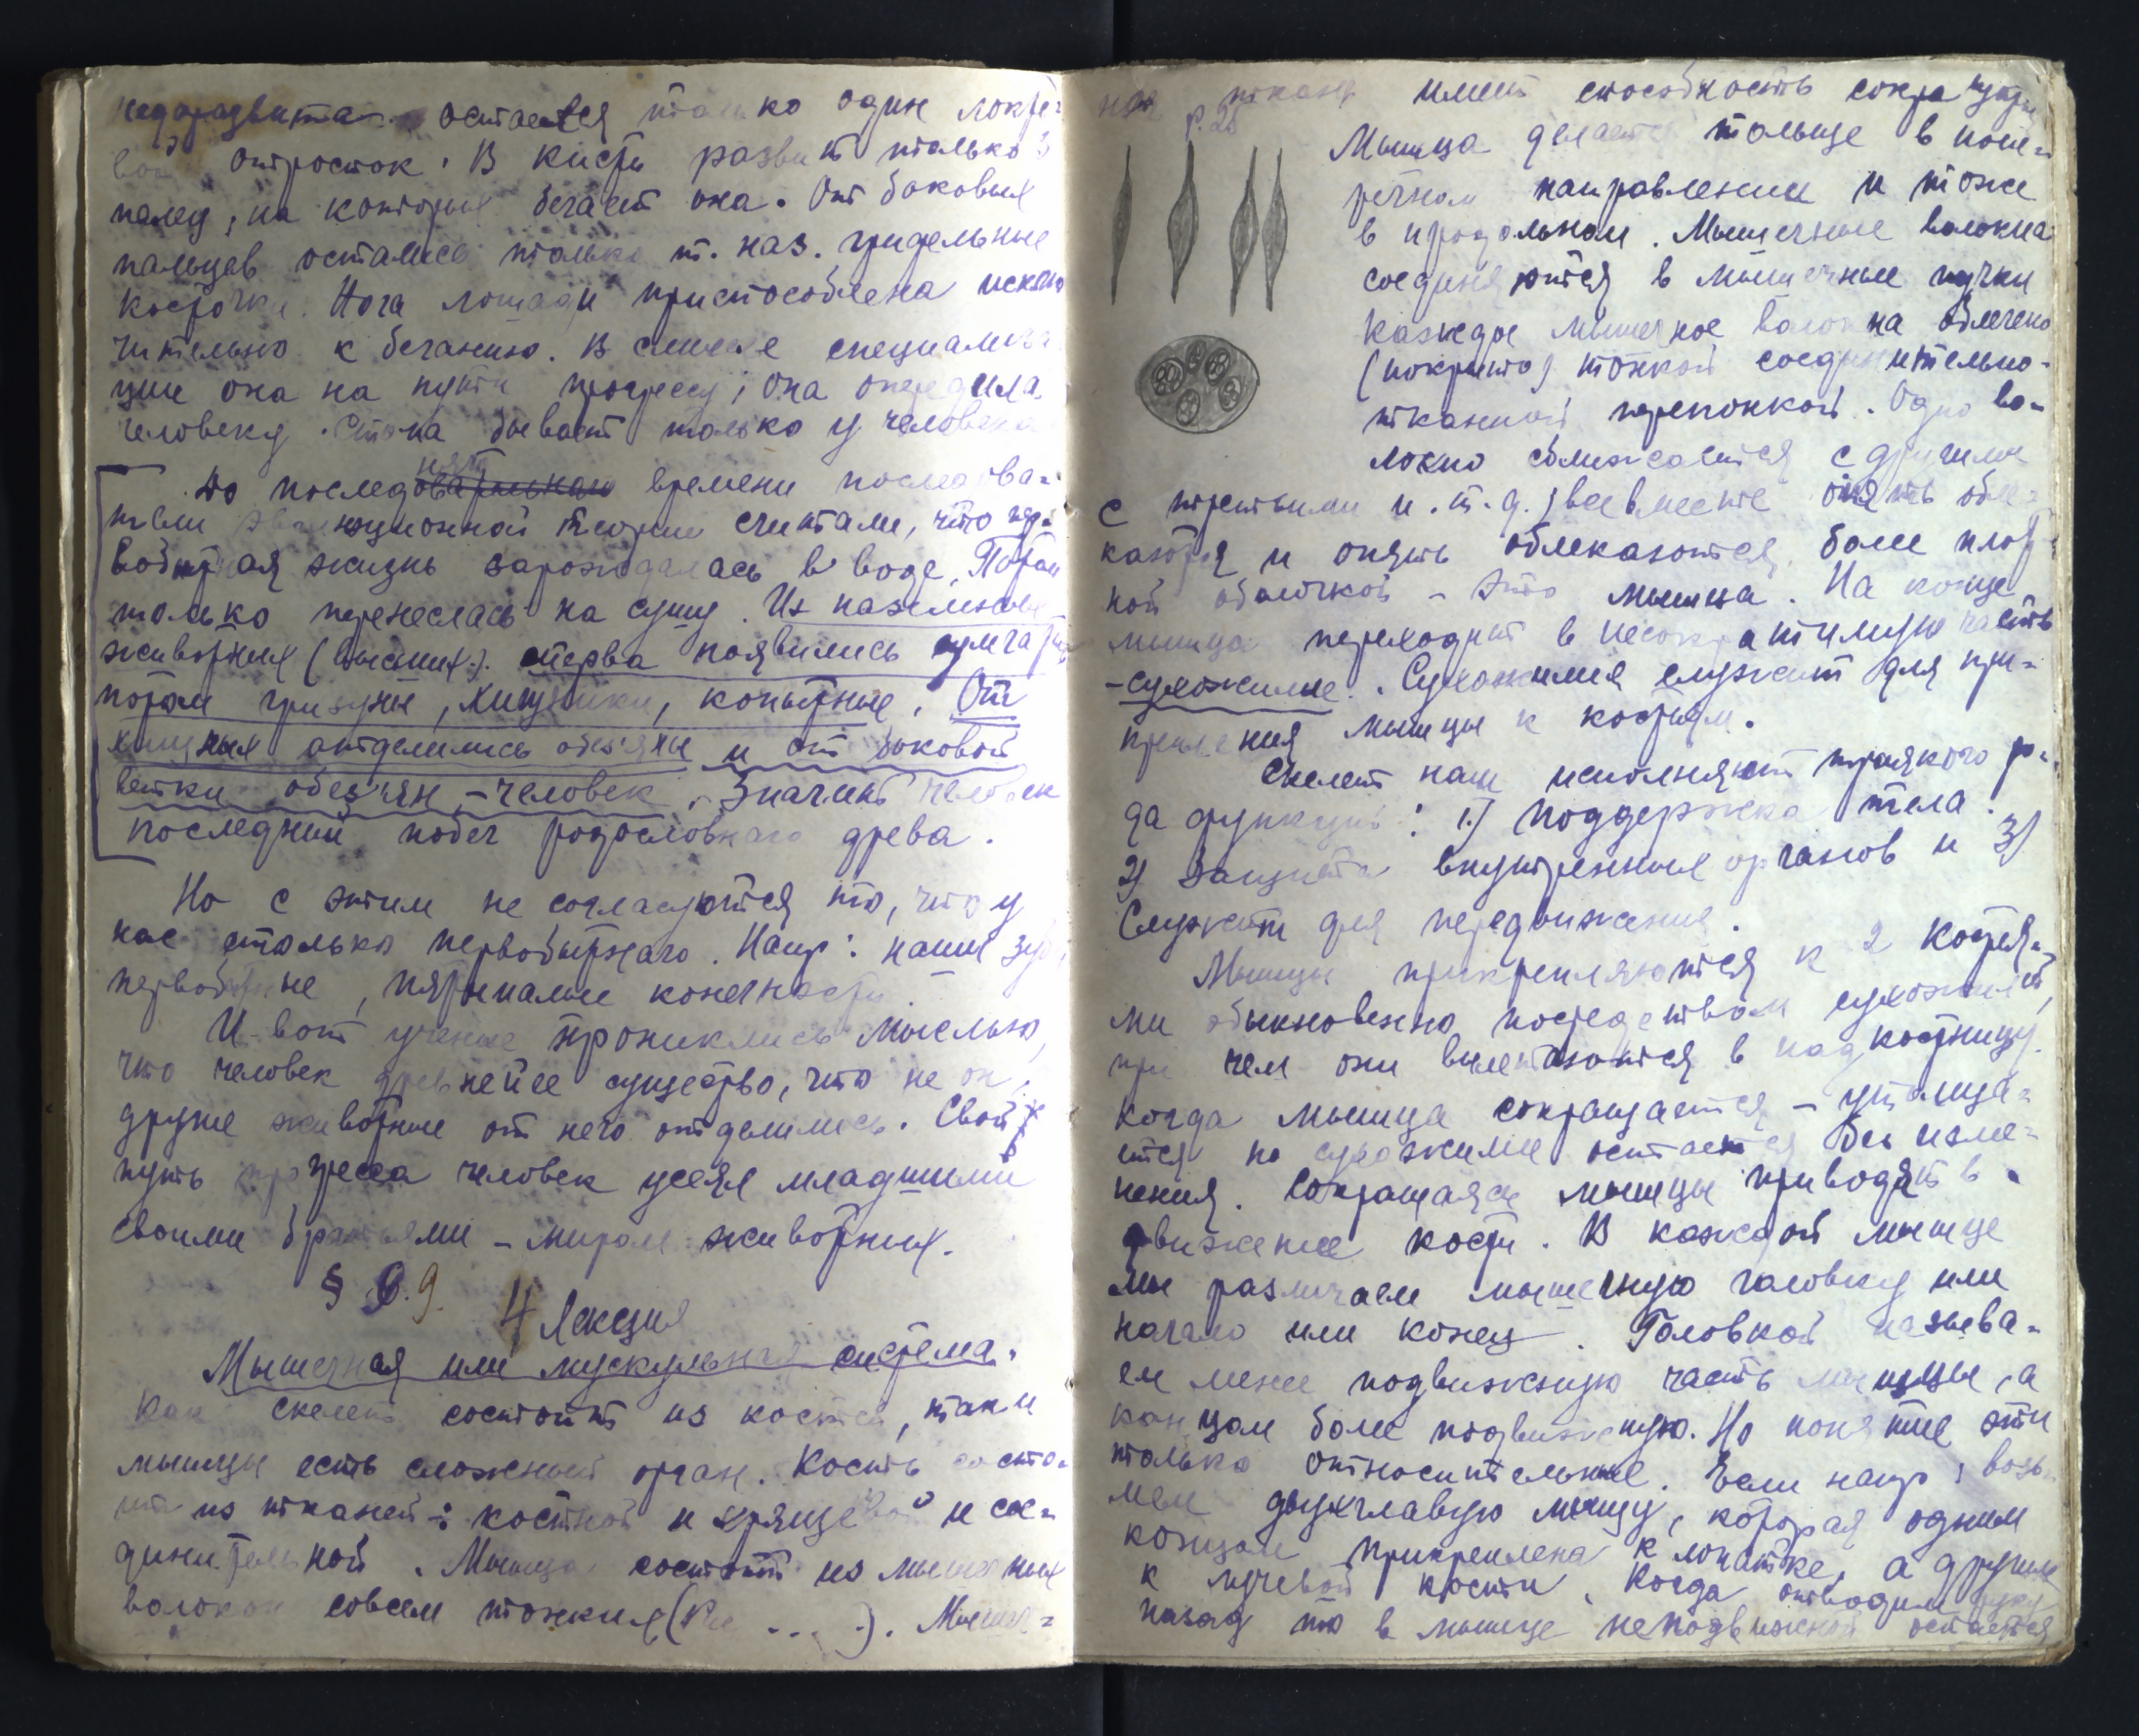 недоразвита. остается только один локте-
вой отросток. В кисти развит только 3
палец, на которых бегает она. От боковых
пальцев остались только т. наз. грифельные
косточки. Нога лошади приспособлена исклю
чительно к беганию. В смысле специализа
ции она на пути прогрессу; она опередила
человеку. Стопа бывает только у человека
До последняго времени последова-
тели эволюционной теории считали, что пер-
вобытная жизнь зарождалась в воде. Потом
только перенеслась на сушу. Из наземных
животных (высших.). сперва появились сумчатые
потом грызуны, хищники, копытные. От
хищных отделились обезьяны и от боковой
ветки обезьян – человек. Значит человек
последний побег родословнаго древа.
Но с этим не согласуются то, что у
нас столько первобытнаго. Напр: наши зубы
первобытные, пятипалые конечности.
И вот ученые прониклись мыслью,
что человек древнейее существо, что не он,
другие животные от него отделились. Свой
путь прогресса человек усеял младшими
своими братьями – миром животных.
§ 9.
4 Лекция
Мышечная или мускульная система.
Как скелет состоит из костей, так и
мышцы есть сложный орган. Кость состо-
ит из тканей: костной и хрящевой и сое-
динительной. Мышца состоит из мышечных
волокон совсем тонких (Рис ... .). Мышеч-
ная ткань имеет способность сокращаться
р. 25
Мышца делается тольще в попе-
речном направлении и тоже
в продольном. Мышечные волокна
соединяются в мышечные пучки
Каждое мышечное волокна облечено
(покрыто) тонкой соединительно-
тканной перепонкой. Одно во-
локно сближается с другими
с третьими и.т.д.; все вместе опять обле-
каются и опять облекаются более плот-
ной оболочкой – это мышца. На конце
мышца переходит в несократимую часть
– сухожилие. Сухожилия служат для при-
крепления мышцы к костям.
Скелет наш исполняют троякого ро-
да функций: 1.) Поддержка тела.
2) Защита внутренних органов и 3)
Служат для передвижения.
Мышцы прикрепляются к 2 костя-
ми обыкновенно посредством сухожилий,
при чем они вплетаются в надкостницу.
Когда мышца сокращается – утолща-
ится но сухожилие остается без изме-
нения. Сокращаясь мышцы приводят в
движение кости. В каждой мышце
мы различаем мышечную головку или
начало или конец. Головкой называ-
ем менее подвижную часть мышцы, а
концом более подвижную. Но понятие эти
только относительные. Если напр, возь-
мем двухглавую мышцу, которая одним
концом прикреплена к лопатке, а другим
к лучевой кости. Когда отводим руку
назад то в мышце неподвижной остается